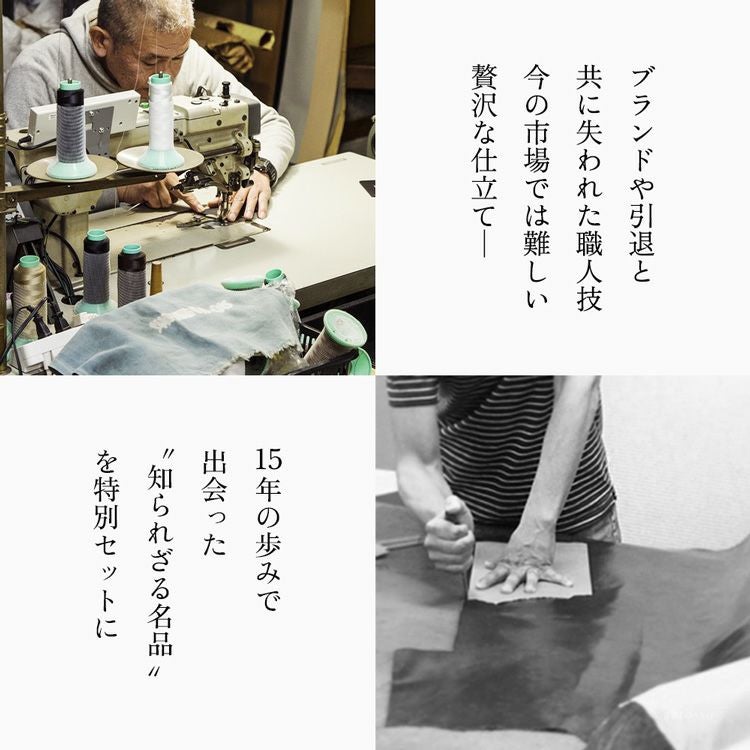 ブランドや引退と
共に失われた職人技
今の市場では難しい
贅沢な仕立て―
15年の歩みで
出会った
〝知られざる名品〟
を特別セットに